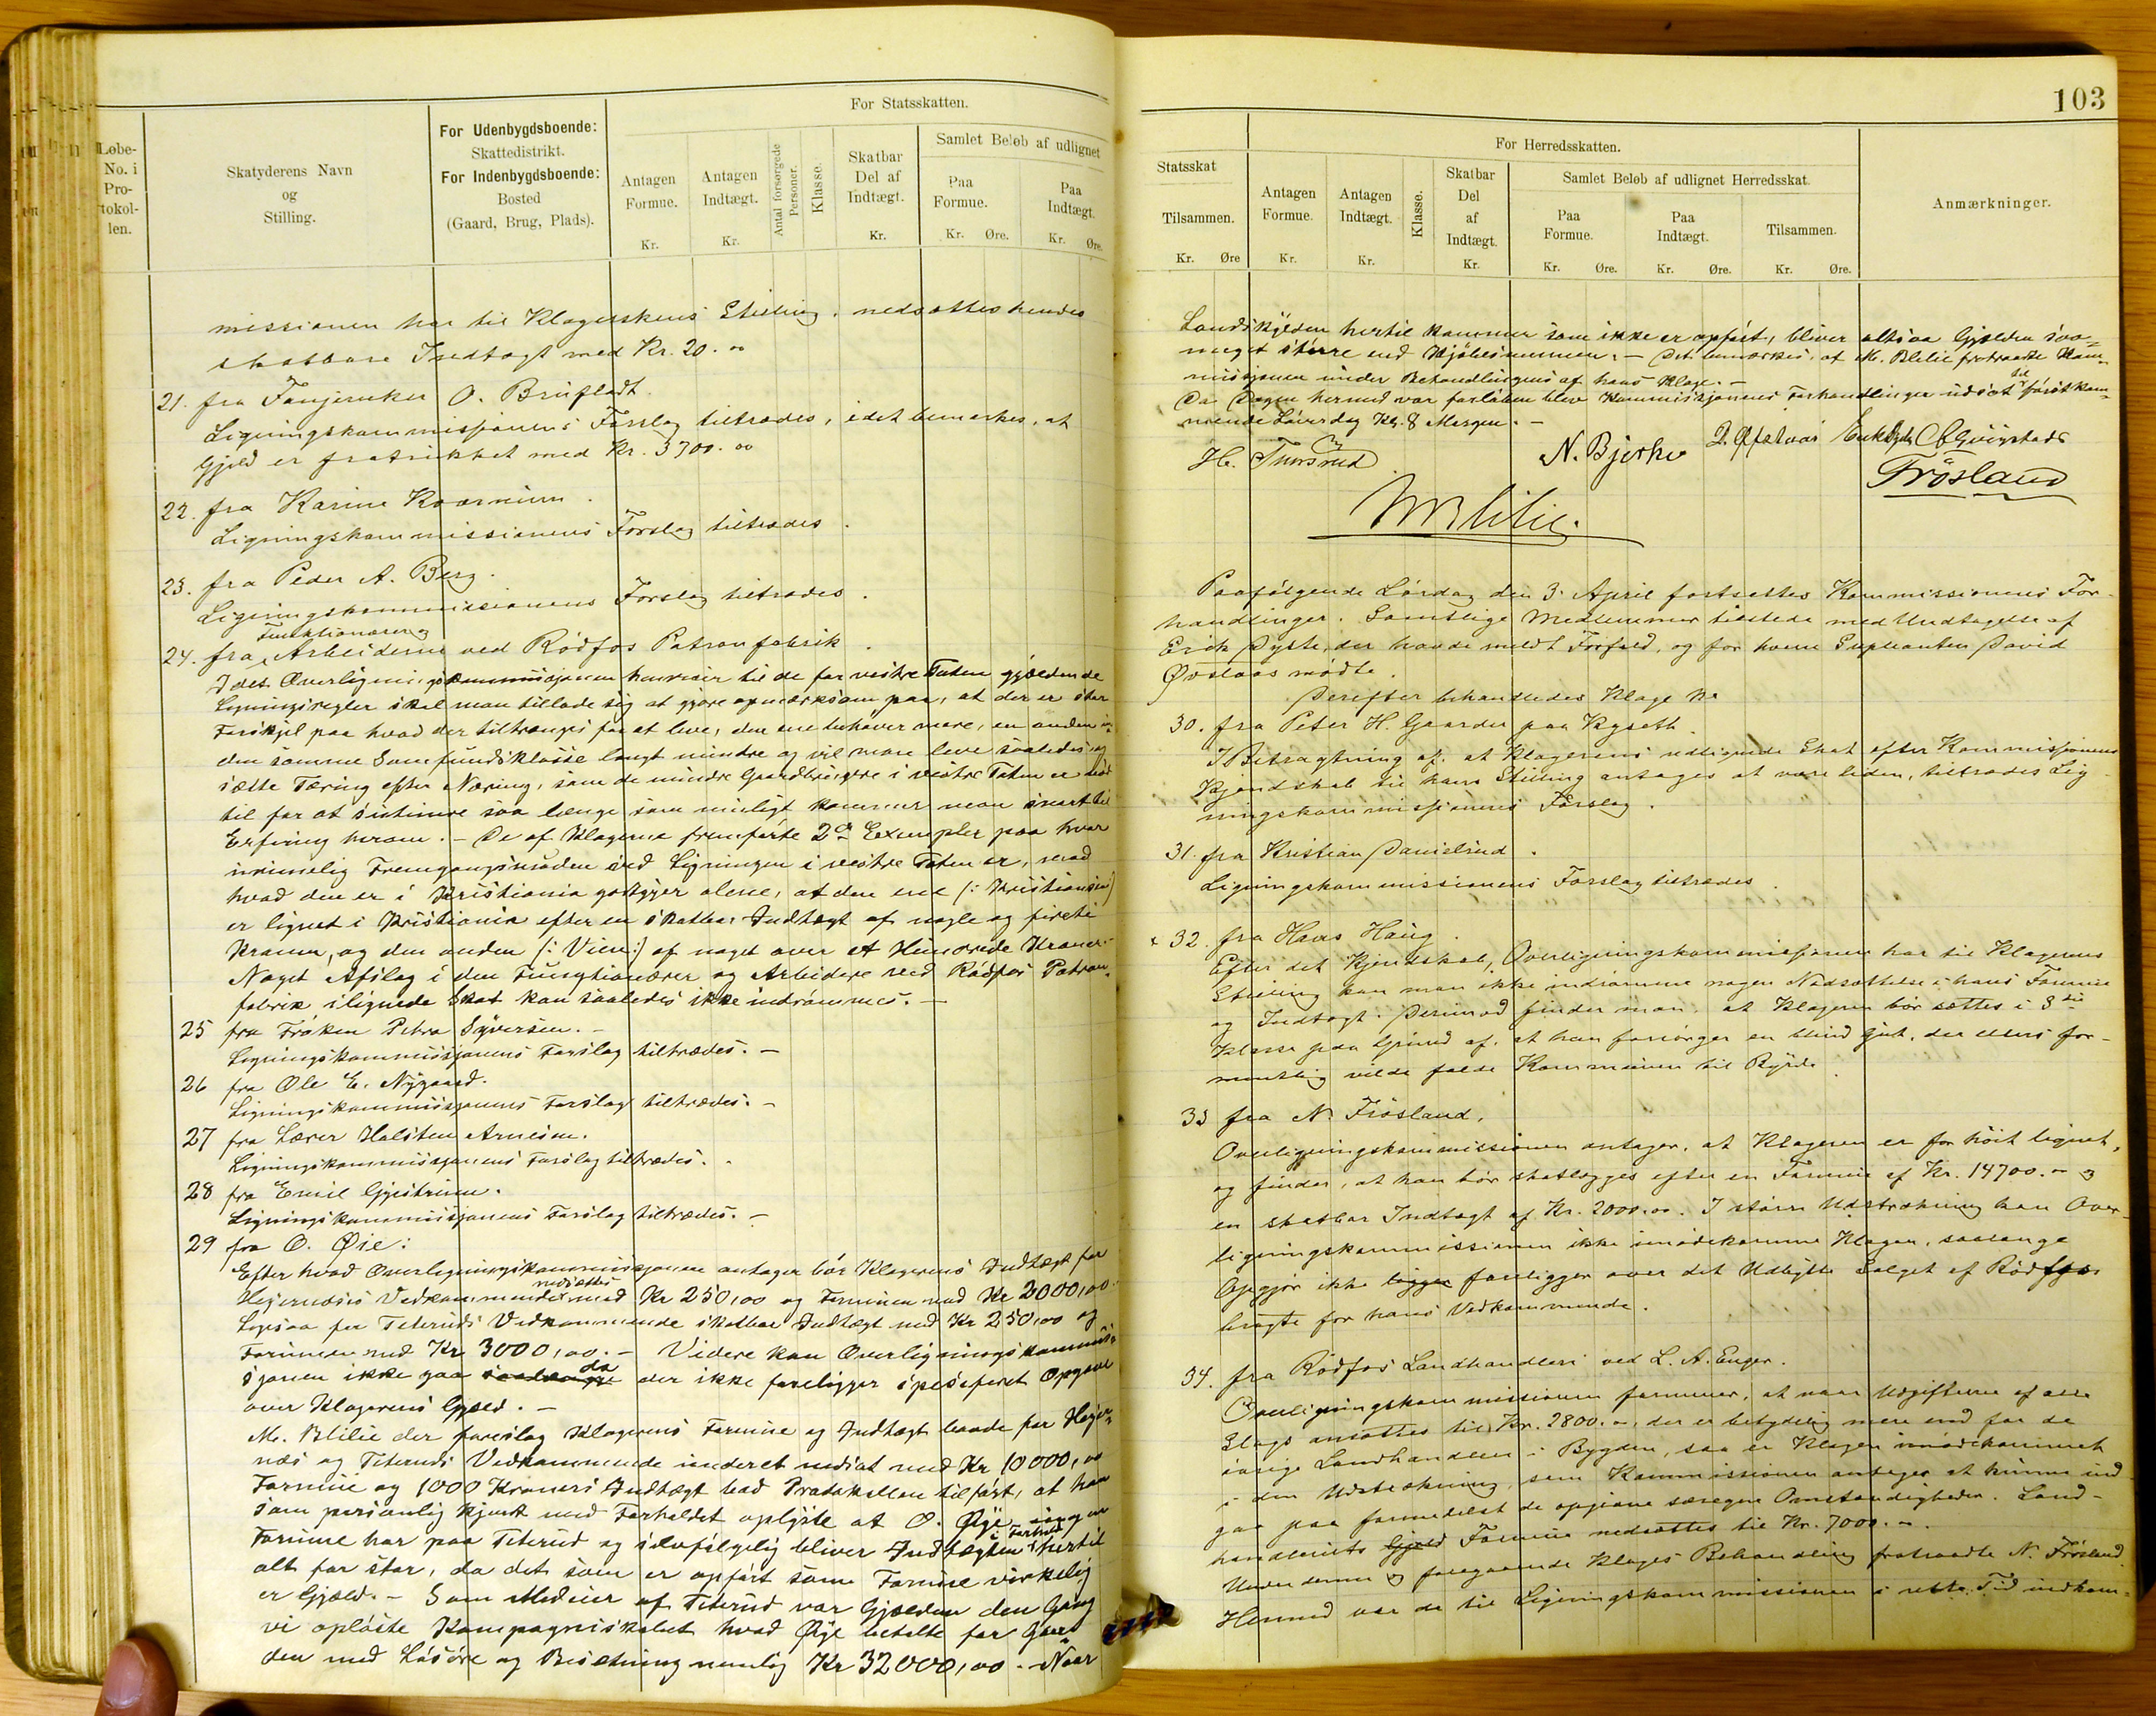 Løbe-
No. i
Pro-
tokol-
len.
Skatyderens Navn
og
Stilling.
For Udenbygdsboende:
Skattedistrikt.
For Indenbygdsboende:
Bosted
(Gaard, Brug, Plads).
For Statsskatten.
Antagen
Formue.
Kr.
Antagen
Indtægt.
Kr.
Antal forsørgede
Personer.
Klasse.
Skatbar
Del af
Indtægt.
Kr.
Samlet Beløb af udlignet
Paa
Formue.
Kr. Øre.
Paa
Indtægt.
Kr. Øre.
missionen har til Klagerskens Stilling, nedsættes hendes
skatbare Indtægt med Kr. 20.00
21. fra O. Brufladt.
Ligningskommissjonens Forslag tiltrædes, idet bemærkes, at
Gjeld er fratrukket med Kr. 3700.00
22. fra Karine
Ligningskommissionens Forslag tiltrædes.
23. fra Peder A. Berg.
Ligningskommissionens Forslag tiltrædes.
Funktionærer og
24. fra Arbeiderne ved Rödfos Patronfabrik.
Idet Overligningskommissjonen henviser til de for vestre Toten gjældende
Ligningsregler skal man tillade sig at gjøre opmærksom paa, at der er stor
Forskjel paa hvad der tiltrænges for at leve, den ene behøver mere, en anden i
den samme Samfundsklasse langt mindre og vil man leve saaledes og
sætte Tæring efter Næring, som de mindre Gaardbrugere i vestre Toten er nød
til for at saa længe som muligt kommer man snart til
Erfaring herom. – De af Klagerne fremførte 2de Exempler paa hvor
urimelig Fremgangsmaaden ved Ligningen i vestre Toten er, mod
hvad den er i Kristiania godtgjør alene, at den ene
er lignet i Kristiania efter en skatbar Indtægt af nogle og firti
Kroner, og den anden (: Vien :) af noget over et Hundrede Kroner.
Noget Afslag i den Fungtionærer og Arbeidere ved Rödfos Patron-
fabrik ilignede Skat kan saaledes ikke indrømmes. –
25 fra Frøken Petra Syversen. –
Ligningskommissjonens Forslag tiltrædes. –
26 fra Ole E. Nygaard.
Ligningskommissjonens Forslag tiltrædes. –
27 fra Lærer Halsten Arnesen.
Ligningskommissjonens Forslag tiltrædes. –
28 fra Emil Gjestrum.
Ligningskommissjonens Forslag tiltrædes. –
29 fra O. Øie:
Efter hvad Overligningskommissjonen antager bør Klagerens Indtægt for
nedsættes
Hejernæs's Vedkommende med Kr 250,00 og Formuen med Kr 2000,00.
Ligesaa for Teteruds Vedkommende skatbar Indtægt med Kr 250,00 og
Formuen med Kr 3000,00. – Videre kan Overligningskommis-
da
sjonen ikke gaa saalænge der ikke foreligger spesifiseret Opgave
over Klagerens Gjæld. –
M. Blilie der foreslog Klagerens Formue og Indtægt baade for Hejer-
næs og Teteruds Vedkommende nedsat med Kr 10000,00
Formue og 1000 Kroners Indtægt bad Protokollen tilført, at han
som personlig kjendt med Forholdet oplyste at O. Øje
i Forhold
Formue har paa Teterud og selvfølgelig bliver Indtægten hertil
alt for stor, da det som er opført som Formue virkelig
er Gjæld. – Som Medeier af Teterud var Gjælden den Gang
vi opløste Kompagniskabet hvad Øje betalte for Gaar-
den med Løsøre og Besætning nemlig Kr 32000,00. – Naar
103
Statsskat
Tilsammen.
Kr. Øre
For Herredsskatten.
Antagen
Formue.
Kr.
Antagen
Indtægt.
Kr.
Klasse.
Skatbar
Del
af
Indtægt.
Kr.
Samlet Beløb af udlignet Herredsskat.
Paa
Formue.
Kr. Øre.
Paa
Indtægt.
Kr. Øre.
Tilsammen.
Kr. Øre.
Anmærkninger.
Landskylden hertil kommer som ikke er opført, bliver altsaa Gjælden saa-
meget større end Kjøbesummen. – Det bemærkes, at M. Blilie fratraadte Kom-
missjonen under Behandlingen af hans Klage. –
til
Da Dagen hermed var forløben blev Kommissjonens Forhandlinger udsat førstkom-
mende Løverdag Kl. 8 Morgen. –
H. Thorsrud N. Bjerke
Frösland
M Blilie.
Paafølgende Lördag den 3. April fortsattes Kommissionens For-
handlinger. Samtlige Medlemmer tilstede med Undtagelse af
Erik Dyste, der havde meldt Forfald, og for hvem Suppleanten David
Øvstaas mødte.
Derefter behandledes Klage No
30. fra Peter H. Gaarder paa Ryseth.
I Betragtning af, at Klagerens udlignede Skat efter Kommissjonens
Kjendskab til hans Stilling antages at være liden, tiltrædes Lig-
ningskommissjonens Forslag.
31. fra Kristian Danielsrud.
Ligningskommissionens Forslag tiltrædes.
x 32. fra Hans Haug.
Efter det Kjendskab, Overligningskommissjonen har til Klagerens
Stilling kan man ikke indrømme nogen Nedsættelse i hans Formue
og Indtægt. Derimod finder man, at Klageren bør sættes i 3die
Klasse paa Grund af, at han forsørger en blind Gut, der ellers for-
mentlig vilde falde Kommunen til Byrde.
33 fra N. Frösland.
Overligningskommissionen antager, at Klageren er for høit lignet,
og finder, at han bør skatlægges efter en Formue af Kr. 14700.00 og
en skatbar Indtægt af Kr. 2000.00. I større Udstrækning kan Over-
ligningskommissionen ikke imødekomme Klagen, saalænge
Opgjør ikke ligger foreligger over det Udbytte Salget af Rödfos
bragte for hans Vedkommende.
34. fra Rödfos Landhandleri ved L. A. Enger.
Overligningskommissionen formener, at naar Udgifterne af alle
Slags ansættes til Kr. 2800.00, der er betydelig mere end for de
øvrige Landhandlere i Bygden, saa er Klagen imødekommet
i den Udstrækning, som Kommissionen antager at kunne ind-
gaa paa formedelst de opgivne særegne Omstændigheder. Land-
handleriets Gjeld Formue nedsættes til Kr. 7000.00.
Under denne og foregaaende Klages Behandling fratraadte N. Frösland.
Hermed var de til Ligningskommissionen i rette Tid indkom-